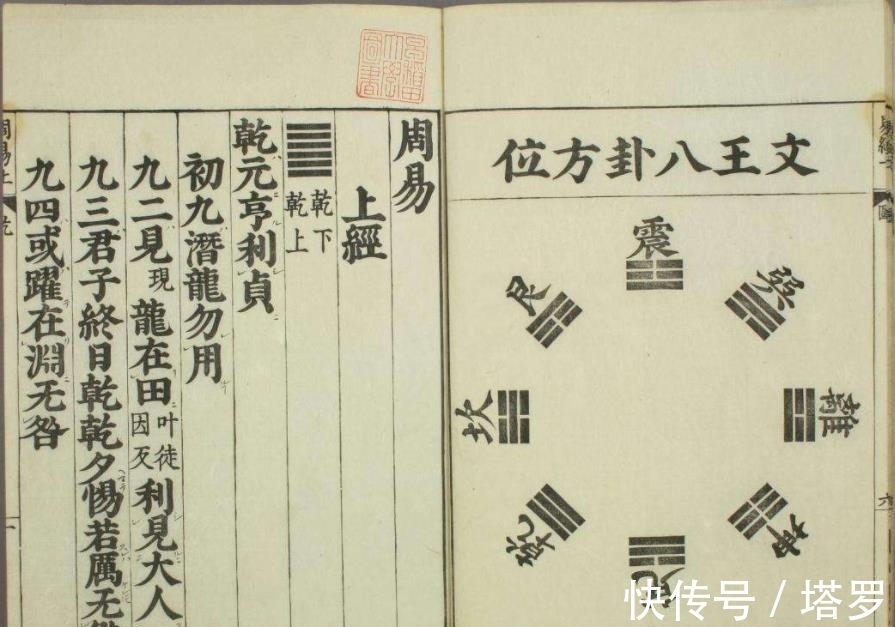 文王八卦方位
震
巽
離
坤
兌
乾
坎
艮
六
周易
上經
乾下
乾上
乾元亨利貞
初九潛龍勿用
九二見現龍在田叶徒因反利見大人
九三君子終日乾乾夕惕若厲无咎
九四或躍在淵无咎
周易上
乾
一
快传号 / 塔罗